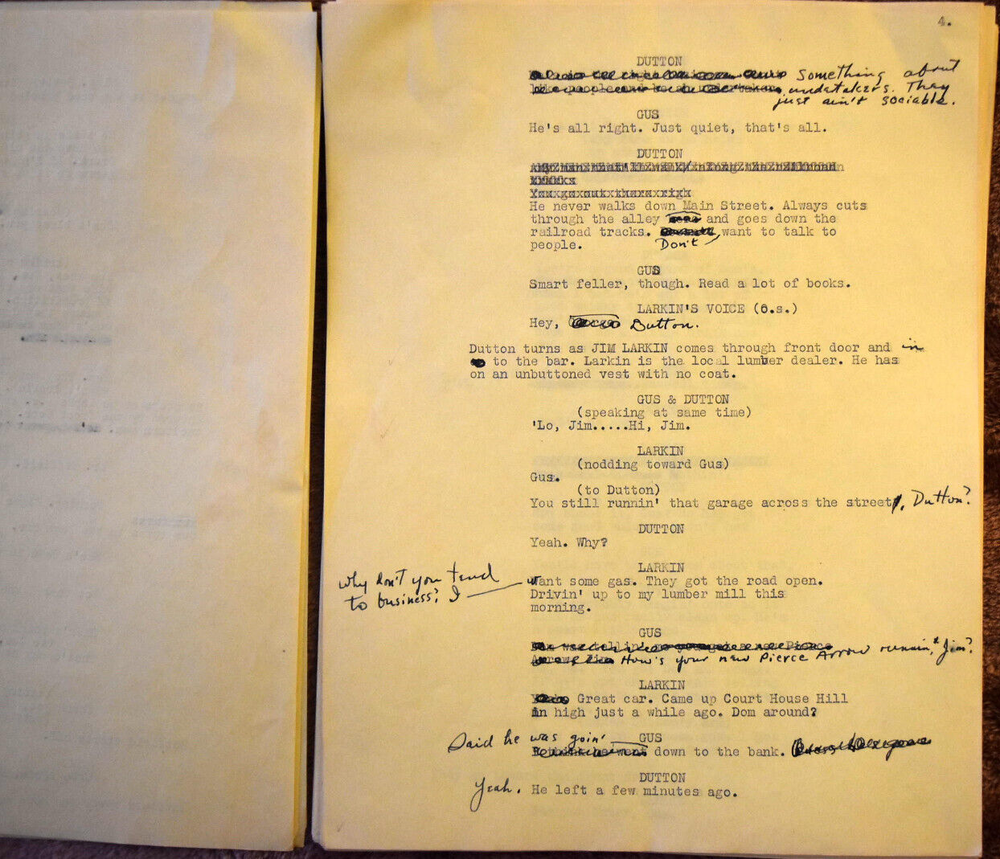 4.
DUTTON
Something about
undertakers. They
just ain't sociable.
GUS
He's all right. Just quiet, that's all.
DUTTON
He never walks down Main Street. Always cuts
through the alley and goes down the
railroad tracks. Don't want to talk to
people.
GUS
Smart feller, though. Read a lot of books.
LARKIN'S VOICE (O.s.)
Hey, Dutton.
Dutton turns as JIM LARKIN comes through front door and in
to the bar. Larkin is the local lumber dealer. He has
on an unbuttoned vest with no coat.
GUS & DUTTON
(speaking at same time)
'Lo, Jim.....Hi, Jim.
LARKIN
(nodding toward Gus)
Gus.
(to Dutton)
You still runnin' that garage across the street, Dutton?
DUTTON
Yeah. Why?
LARKIN
Why don't you tend
to business? I
want some gas. They got the road open.
Drivin' up to my lumber mill this
morning.
GUS
How's your new Pierce Arrow runnin', Jim?
LARKIN
Great car. Came up Court House Hill
in high just a while ago. Dom around?
GUS
Said he was goin' down to the bank.
DUTTON
Yeah. He left a few minutes ago.